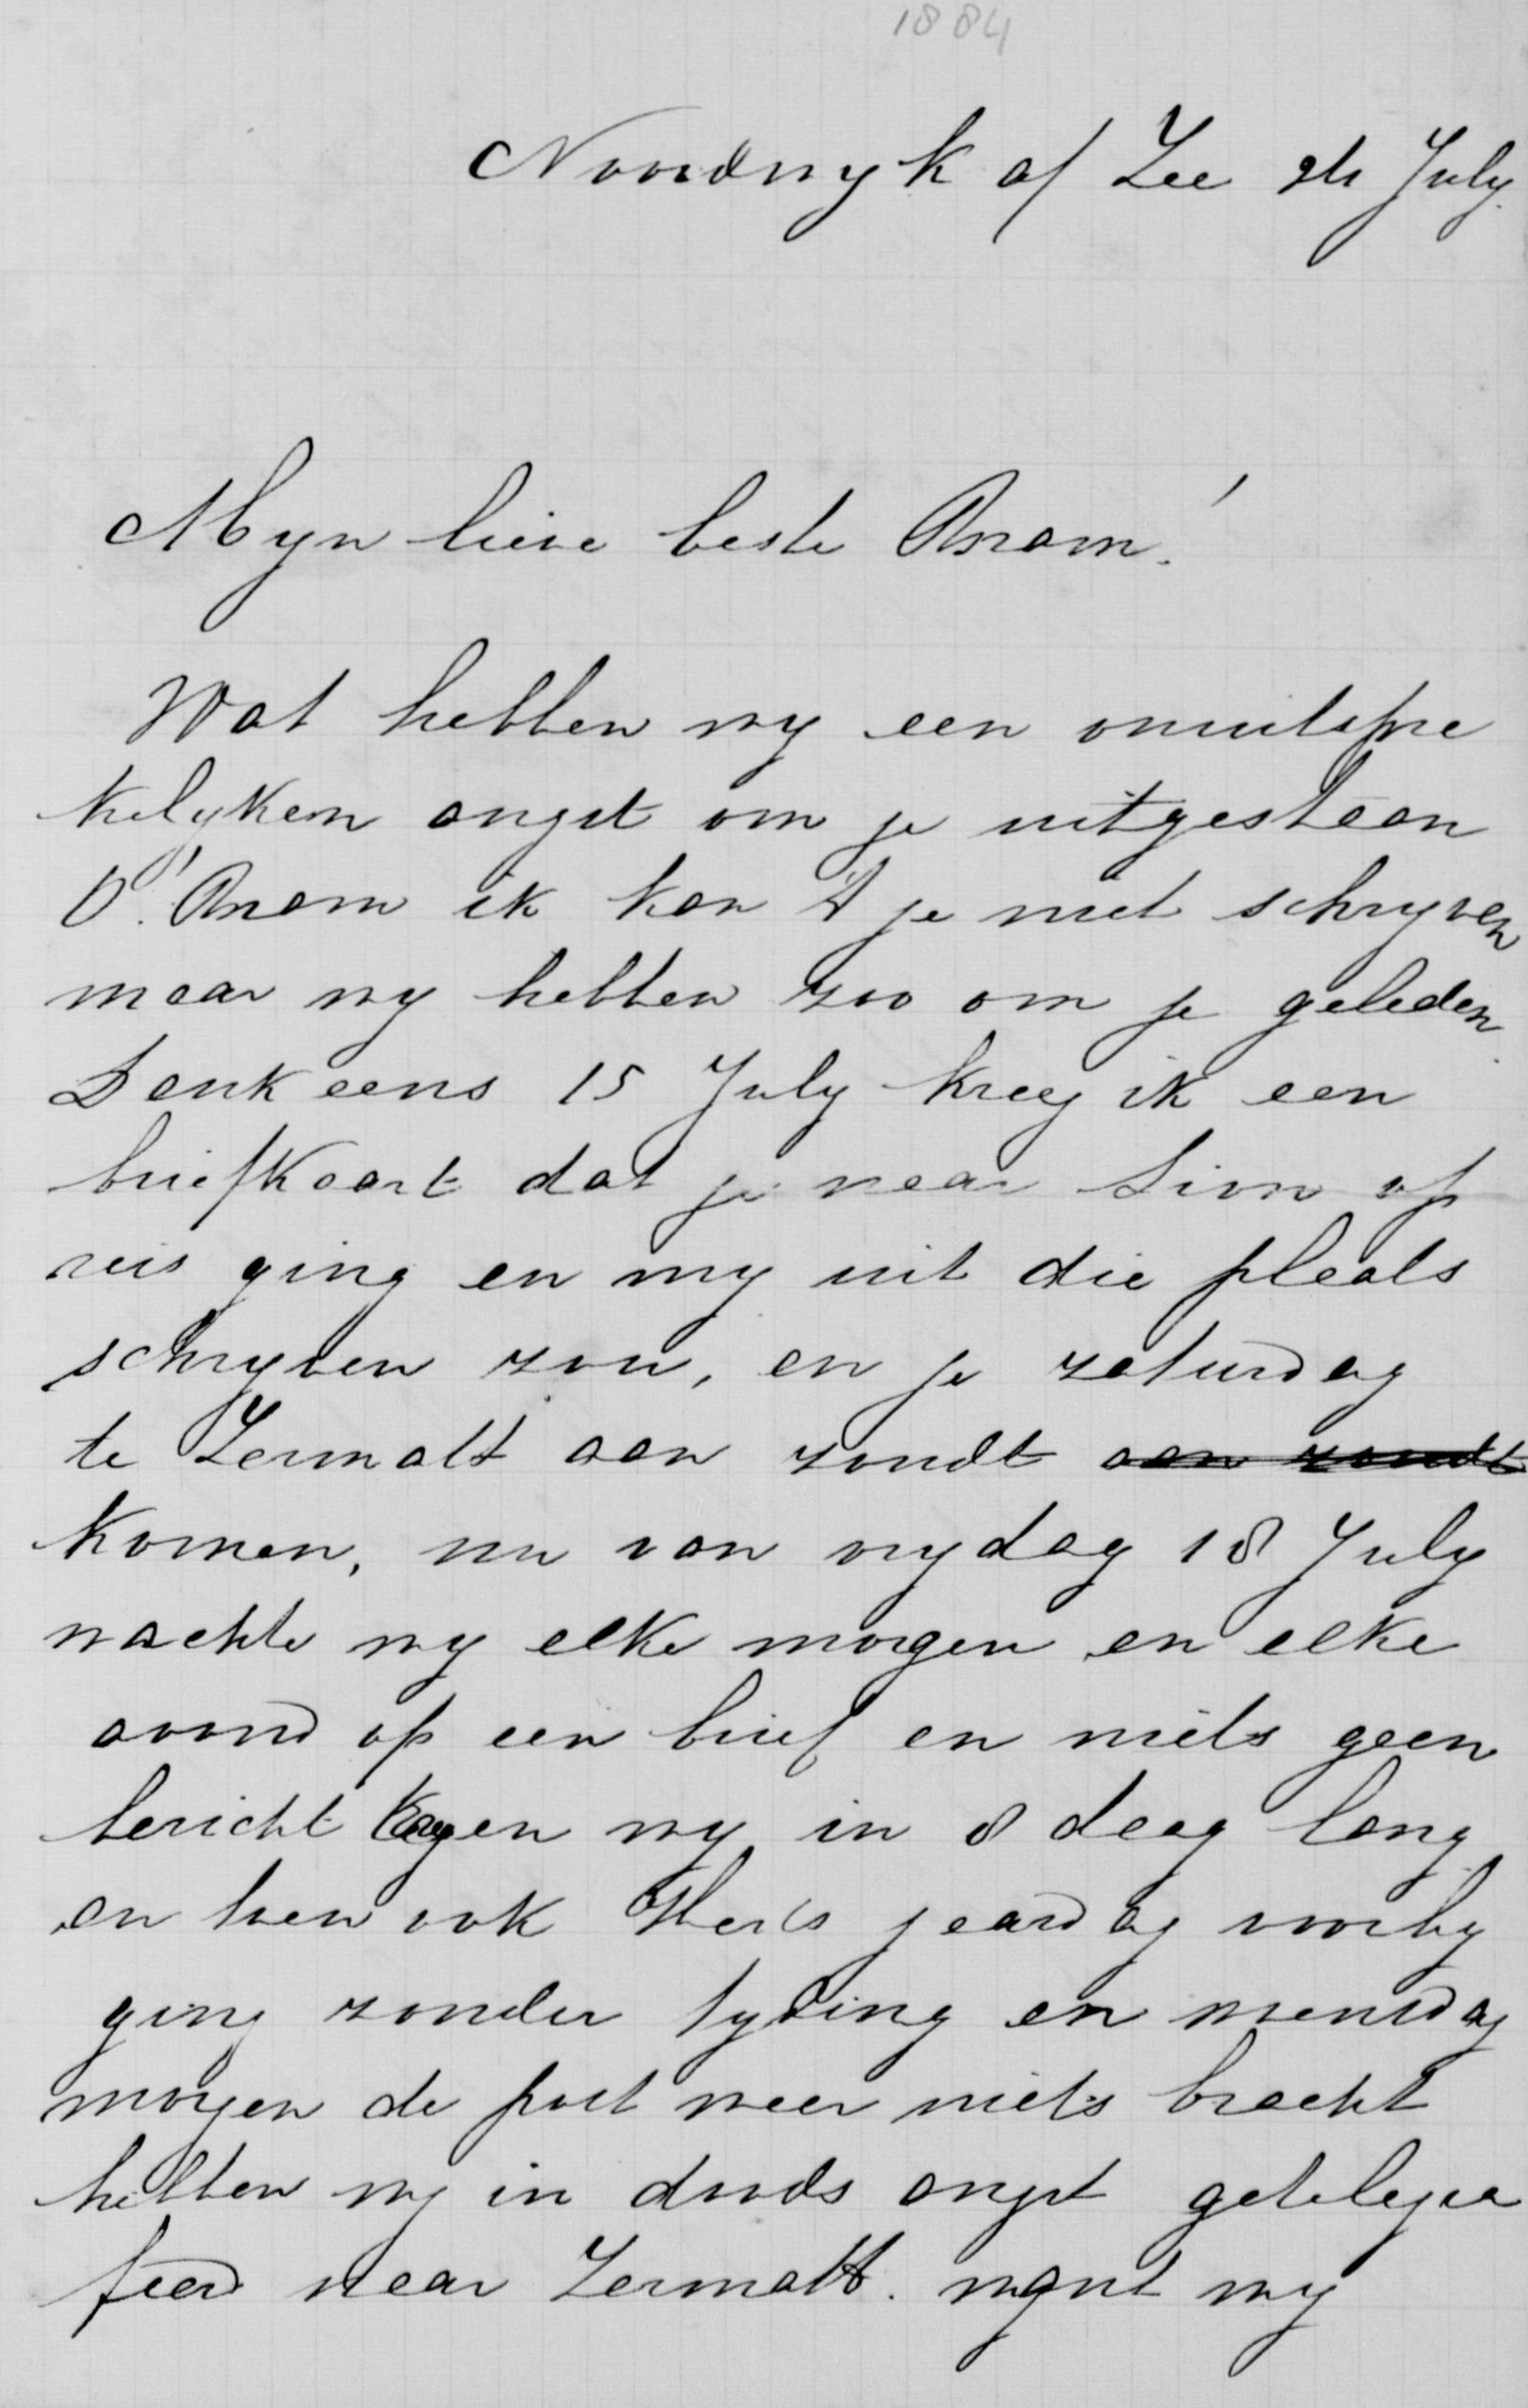 1884
Noordwyk a/ Zee 24 July.
Myn lieve beste Bram!
Wat hebben wy een onuitspre
kelyken angst om je uitgestaan
O! Bram ik kan 't je niet schryven
maar wy hebben zoo om je geleden.
Denk eens 15 July kreeg ik een
briefkaart dat je naar Sion op
reis ging en my uit die plaats
schryven zou, en je zaturdag
te Zermatt aan zoudt aan zoudt
komen, nu van vrydag 18 July
wachte wy elke morgen en elke
avond op een brief en niets geen
bericht kregen wy in 8 daag lang
en toen ook yaardag voorby
ging zonder tyding en woensdag
morgen de post weer niets bracht
hebben wy in doods angst getelegra
feerd naar Zermatt. want wy